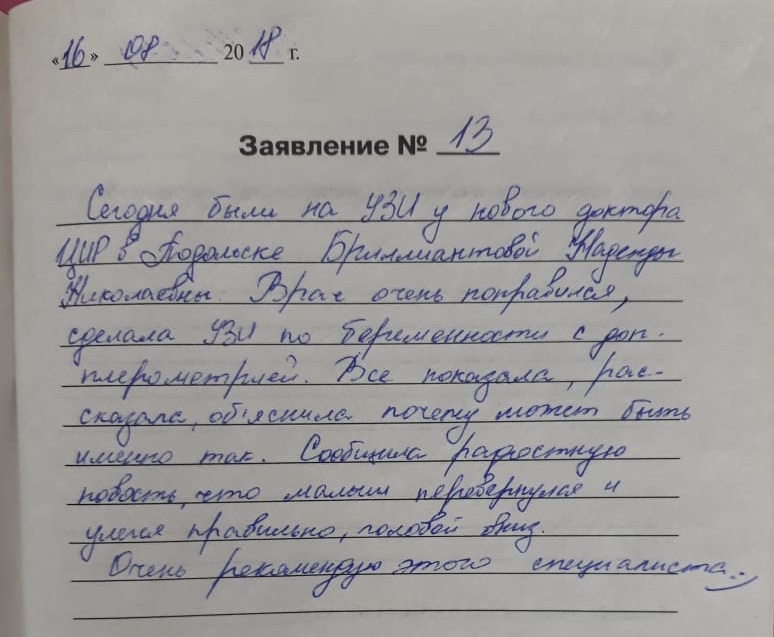 «16» 08 2018 г.
Заявление № 13
Сегодня были на УЗИ у нового доктора
ЦИР в Подольске Бриллиантовой Надежды
Николаевны. Врач очень понравился,
сделала УЗИ по беременности с доп-
плерометрией. Все показала, рас-
сказала, об'яснила почему может быть
именно так. Сообщила радостную
новость, что малыш перевернулся и
улегся правильно, головой вниз.
Очень рекомендую этого специалиста :)